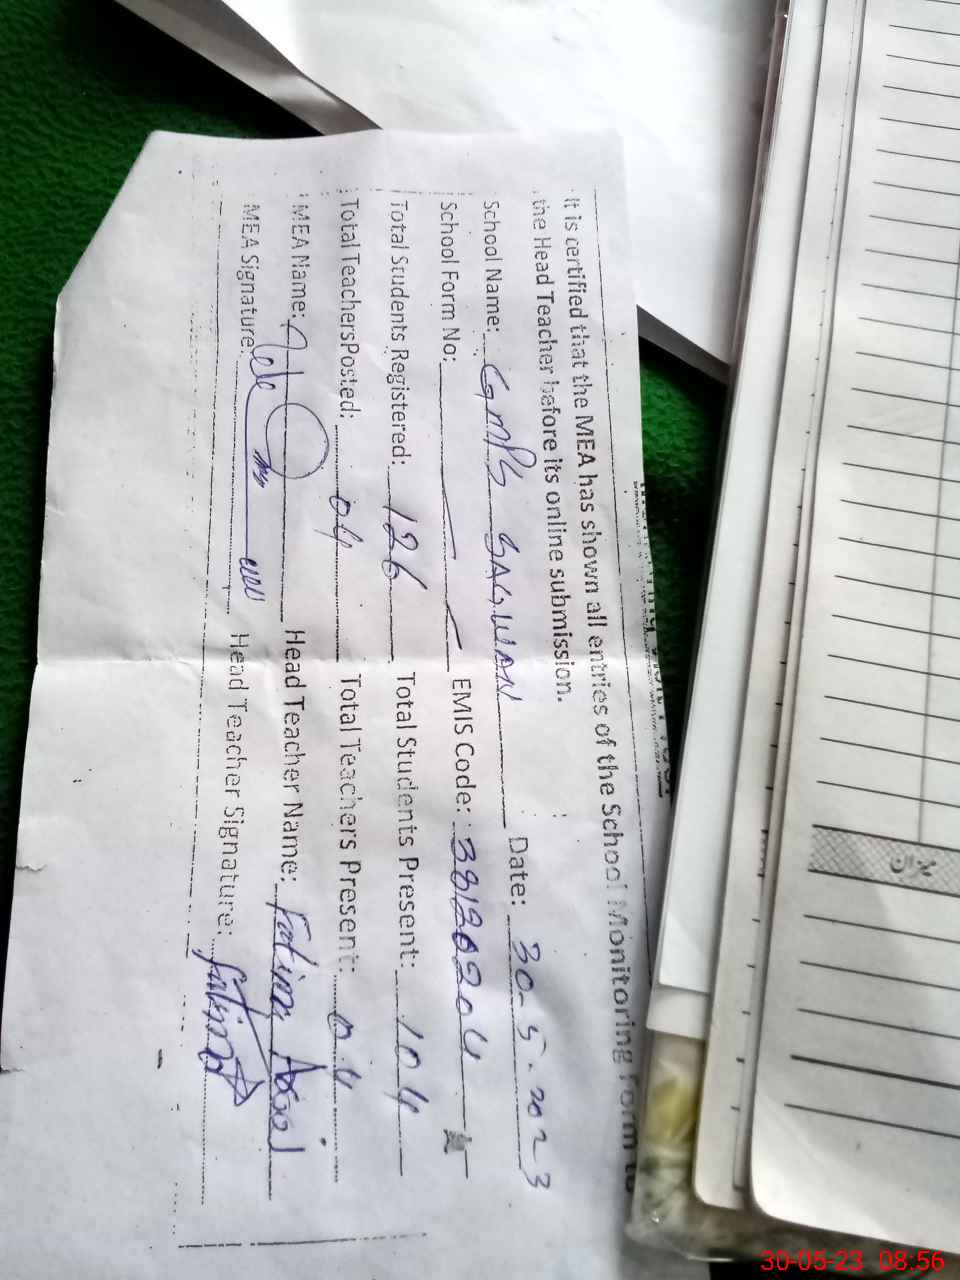 It is certified that the MEA has shown all entries of the School Monitoring Form to
the Head Teacher before its online submission.
School Name: GMPS SAGWAN Date: 30-5-2023
School Form No: EMIS Code: 38130204
Total Students Registered: 126 Total Students Present: 104
Total TeachersPosted: 04 Total Teachers Present: 04
MEA Name: Head Teacher Name: Fatima
MEA Signature: Head Teacher Signature: Fatima
30-05-23 08:56